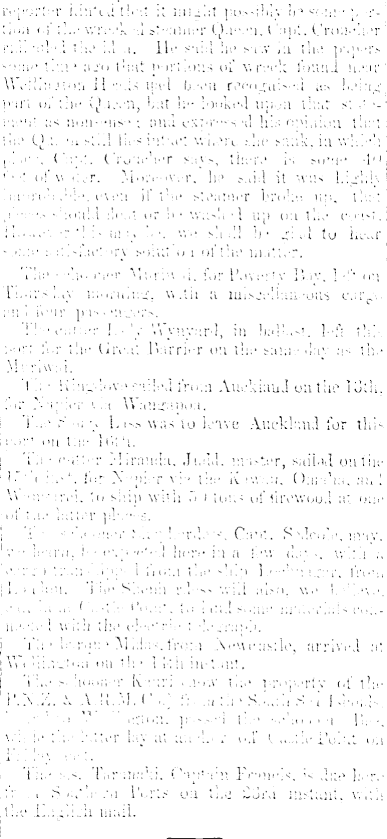 reporter hinted that it might possibly be some por-
tion of the wrecked steamer Queen, Capt. Croucher
ridiculed the idea. He said he saw in the papers
some time ago that portions of wreck found near
Wellington Heads had been recognised as being
part of the Queen, but he looked upon that state-
ment as nonsense, and expressed his opinion that
the Queen still lies intact where she sank, in which
place, Capt. Croucher says, there is some 40
feet of water. Moreover, he said it was highly
improbable, even if the steamer broke up, that
pieces should float or be washed up on the coast.
However this may be, we shall be glad to hear
some satisfactory solution of the matter.
The schooner Muriwai, for Poverty Bay, left on
Thursday morning, with a miscellaneous cargo
and four passengers.
The cutter Lady Wynyard, in ballast, left this
port for the Great Barrier on the same day as the
Muriwai.
The Ringdove sailed from Auckland on the 13th,
for Napier via Wangapoa.
The Lass was to leave Auckland for this
port on the 16th.
The cutter Miranda, Judd, master, sailed on the
instant, for Napier via the Kawau, Omaha, and
to ship with 50 tons of firewood at one
of the latter places.
The schooner Capt. may,
we learn, be expected here in a few days, with a
cargo from the ship from
London. The will also, we believe,
Castle Point, to land some materials con-
nected with the electric telegraph.
The barque Midas, from Newcastle, arrived at
Wellington on the 14th instant.
The schooner now the property of the
P.N.Z. & A.R.M. Co.) from the South Sea Islands,
passed the schooner
while the latter lay at anchor off Castle Point on
Friday
The s.s. Taranaki, Captain Francis, is due here
from Southern Ports on the 23rd instant, with
the English mail.